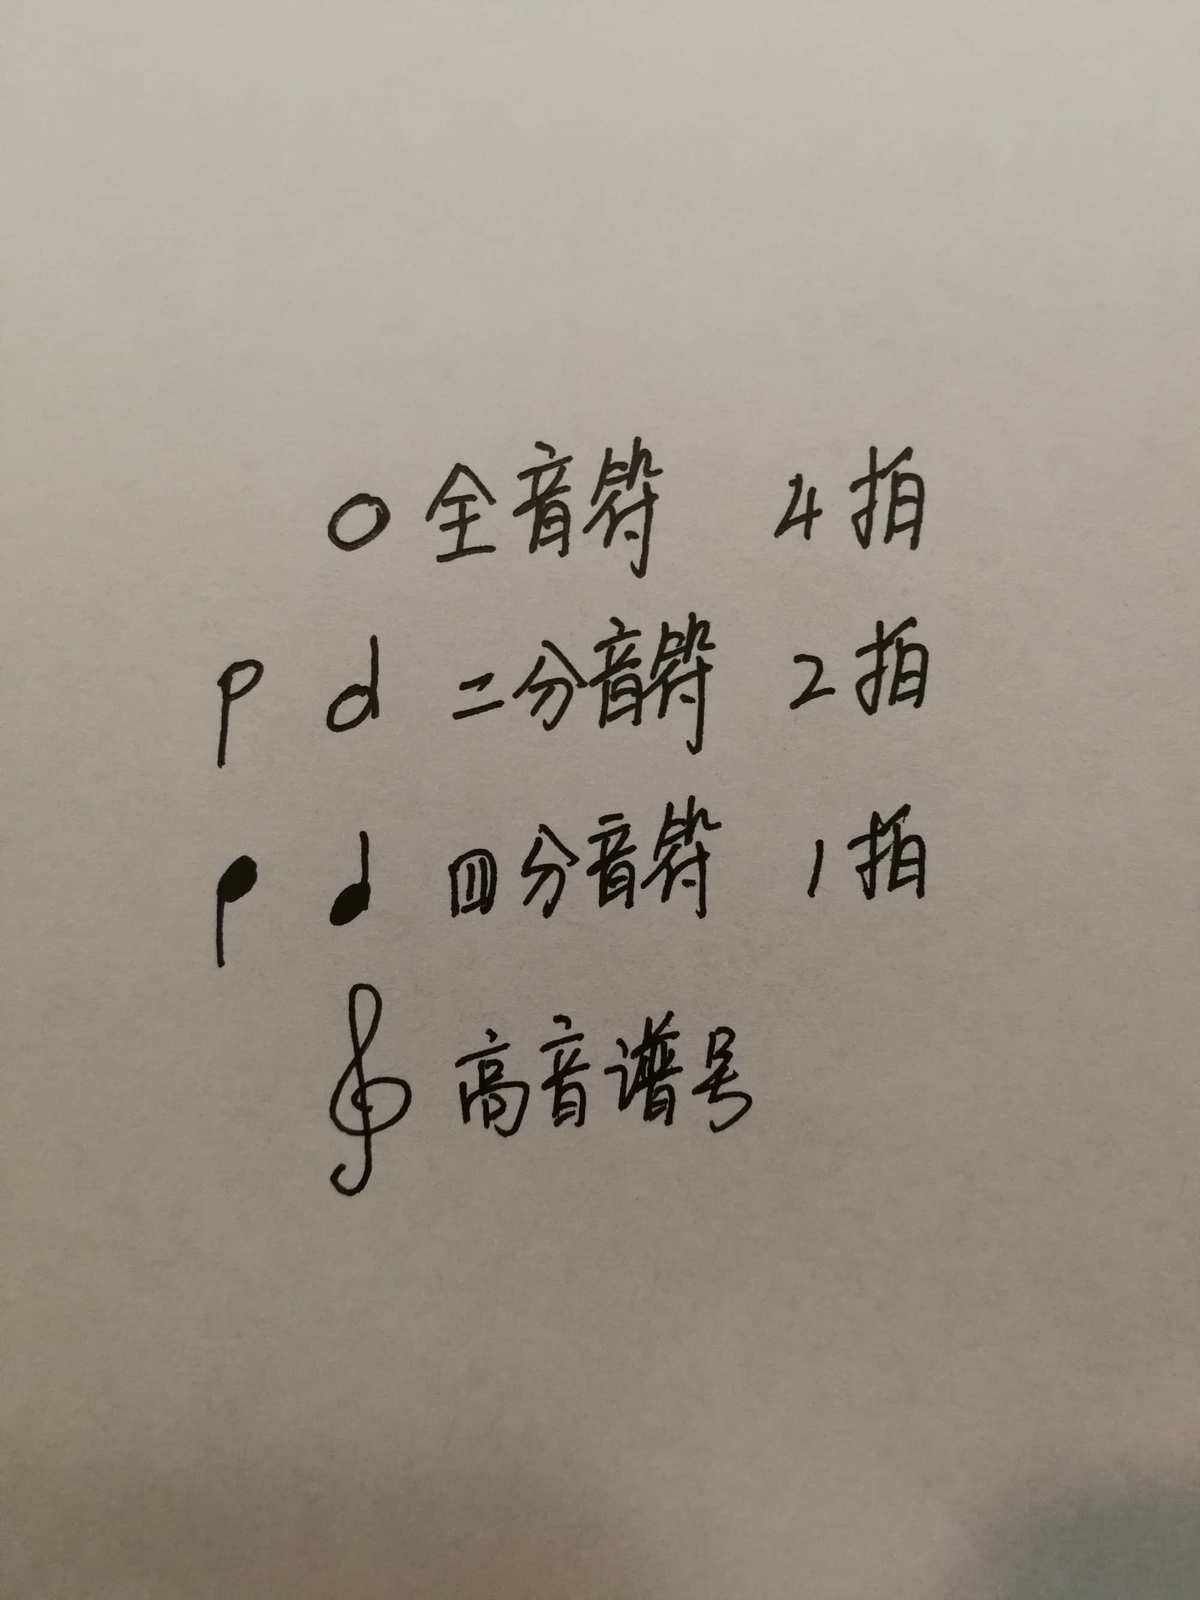 全音符 4拍
二分音符 2拍
四分音符 1拍
高音谱号